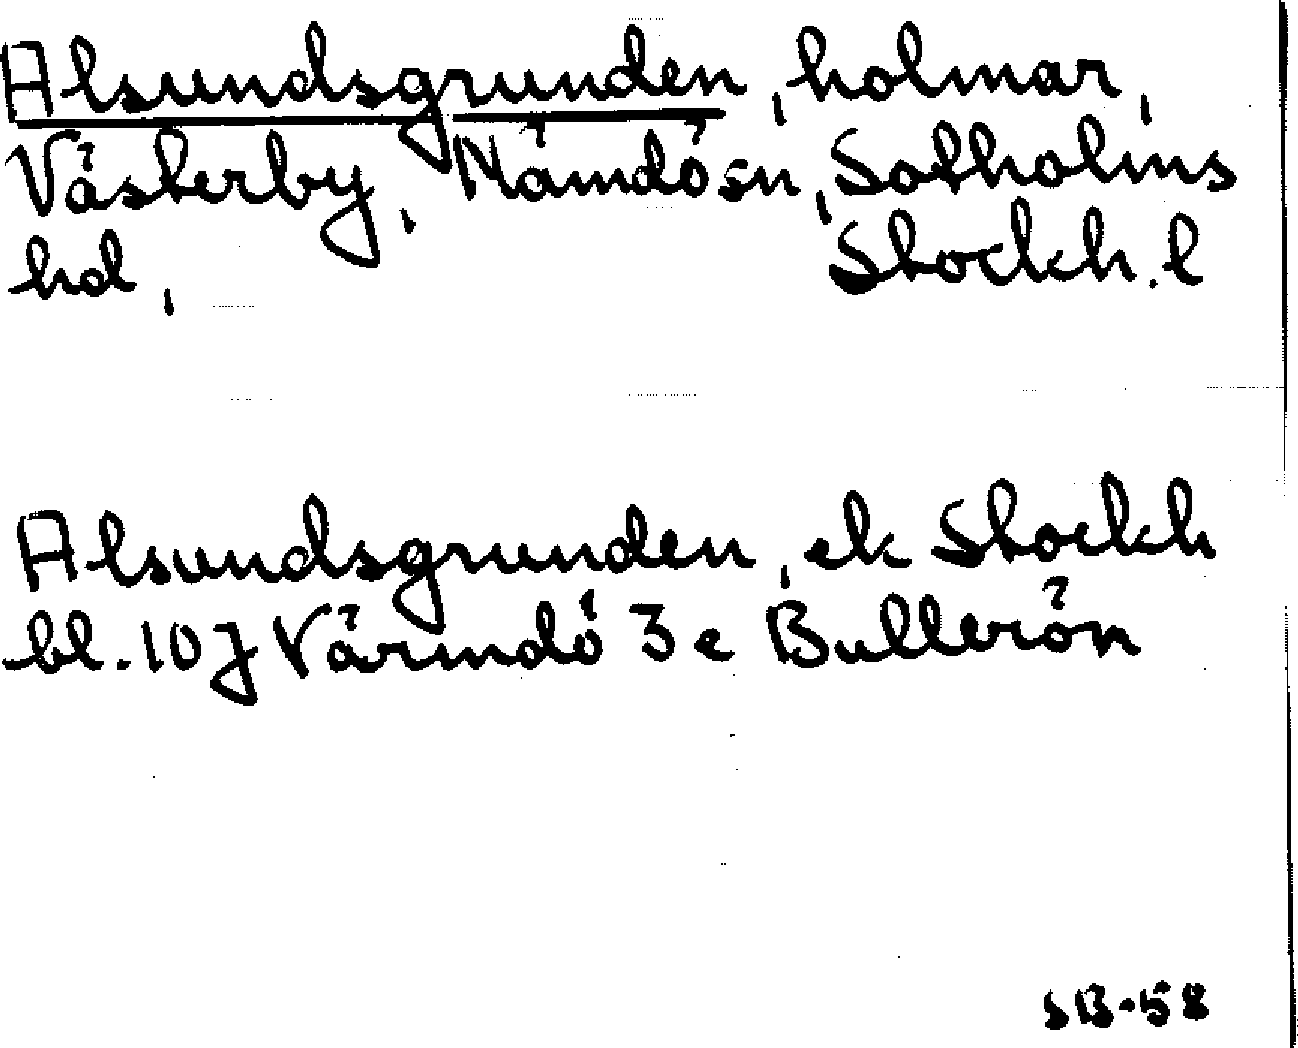 Alsundsgrunden, holmar,
Västerby, Nämdö sn, Sotholms
hd, Stockh. l
Alsundsgrunden, ek Stockh
bl. 107 Värmdö 3 e Bullerön
SB-58